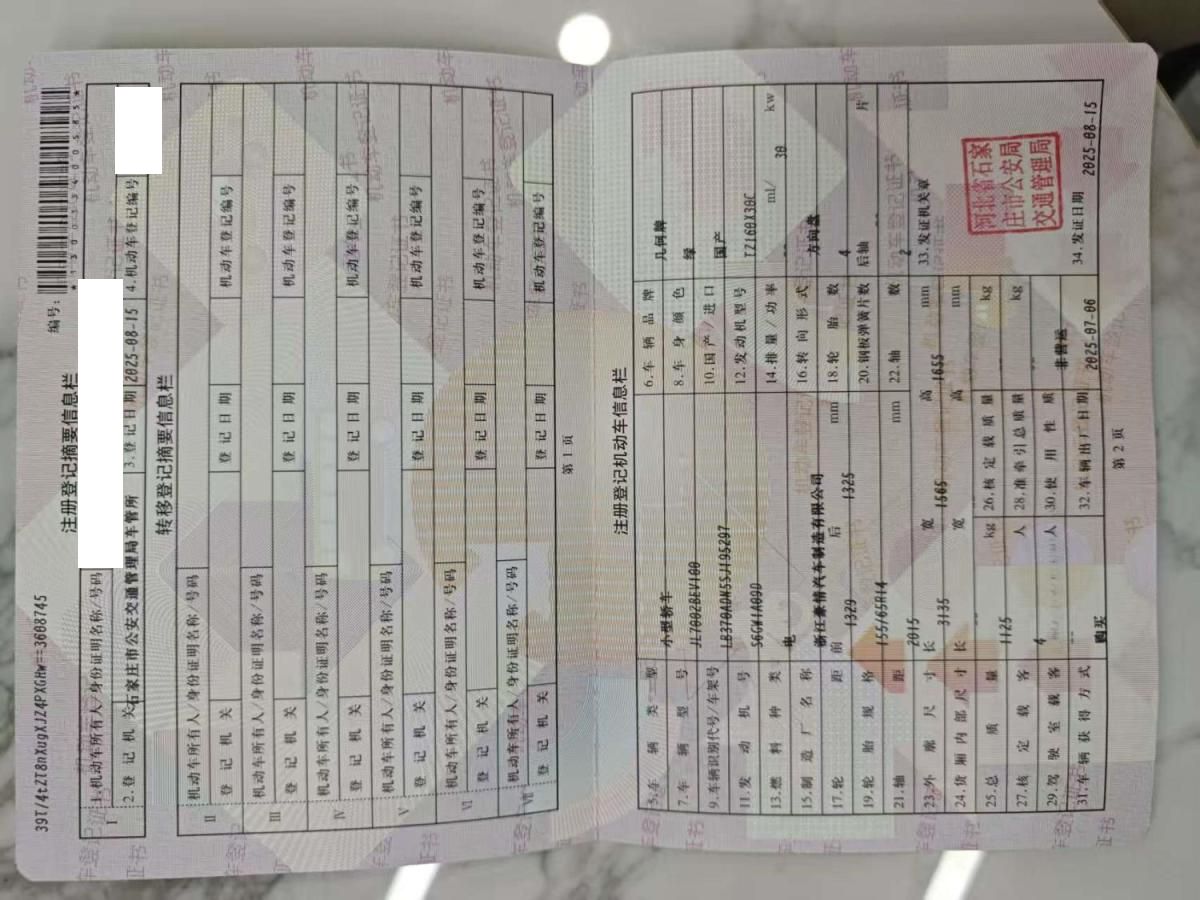 39T/4t2T8nXugXJZ4PXGHw==3608745
编号:
*130013400585*
注册登记摘要信息栏
Ⅰ
1.机动车所有人/身份证明名称/号码
2.登记机关 石家庄市公安交通管理局车管所 3.登记日期 2025-08-15 4.机动车登记编号
转移登记摘要信息栏
Ⅱ
机动车所有人/身份证明名称/号码
登记机关 登记日期 机动车登记编号
Ⅲ
机动车所有人/身份证明名称/号码
登记机关 登记日期 机动车登记编号
Ⅳ
机动车所有人/身份证明名称/号码
登记机关 登记日期 机动车登记编号
Ⅴ
机动车所有人/身份证明名称/号码
登记机关 登记日期 机动车登记编号
Ⅵ
机动车所有人/身份证明名称/号码
登记机关 登记日期 机动车登记编号
Ⅶ
机动车所有人/身份证明名称/号码
登记机关 登记日期 机动车登记编号
第1页
注册登记机动车信息栏
5.车辆类型 小型轿车 6.车辆品牌 几何牌
7.车辆型号 JL7002BEV100 8.车身颜色 绿
9.车辆识别代号/车架号 LB370ADW5SJ195297 10.国产/进口 国产
11.发动机号 S6GW1A09D 12.发动机型号 TZ160X30C
13.燃料种类 电 14.排量/功率 -- ml/ 30 kw
15.制造厂名称 浙江豪情汽车制造有限公司 16.转向形式 方向盘
17.轮距 前 1329 后 1325 mm 18.轮胎数 4
19.轮胎规格 155/65R14 20.钢板弹簧片数 后轴 -- 片
21.轴距 2015 mm 22.轴数 2
23.外廓尺寸 长 3135 宽 1565 高 1655 mm 33.发证机关章
24.货厢内部尺寸 长 -- 宽 -- 高 -- mm
25.总质量 1125 kg 26.核定载质量 -- kg
27.核定载客 4 人 28.准牵引总质量 -- kg
29.驾驶室载客 -- 人 30.使用性质 非营运
31.车辆获得方式 购买 32.车辆出厂日期 2025-07-06 34.发证日期 2025-08-15
河北省石家
庄市公安局
交通管理局
第2页